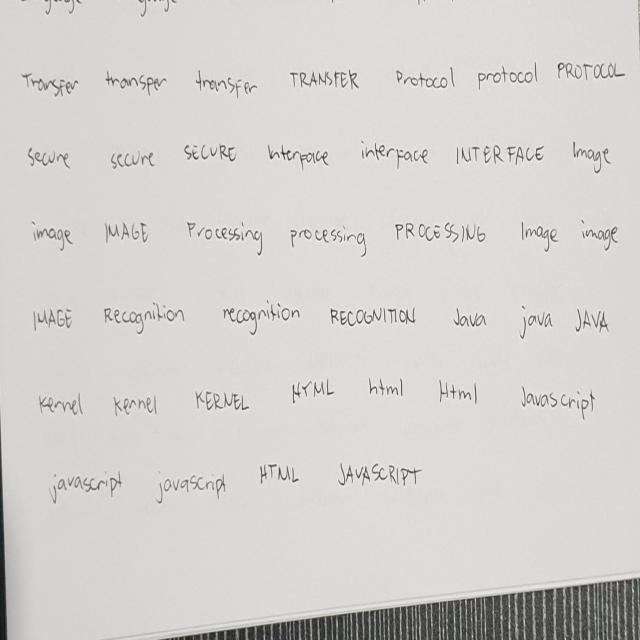 Transfer transfer transfer TRANSFER Protocol protocol PROTOCOL
Secure secure SECURE Interface interface INTERFACE Image
image IMAGE Processing processing PROCESSING Image image
IMAGE Recognition recognition RECOGNITION Java java JAVA
Kernel kernel KERNEL HYML html Html Javascript
javascript javascript HTML JAVASCRIPT